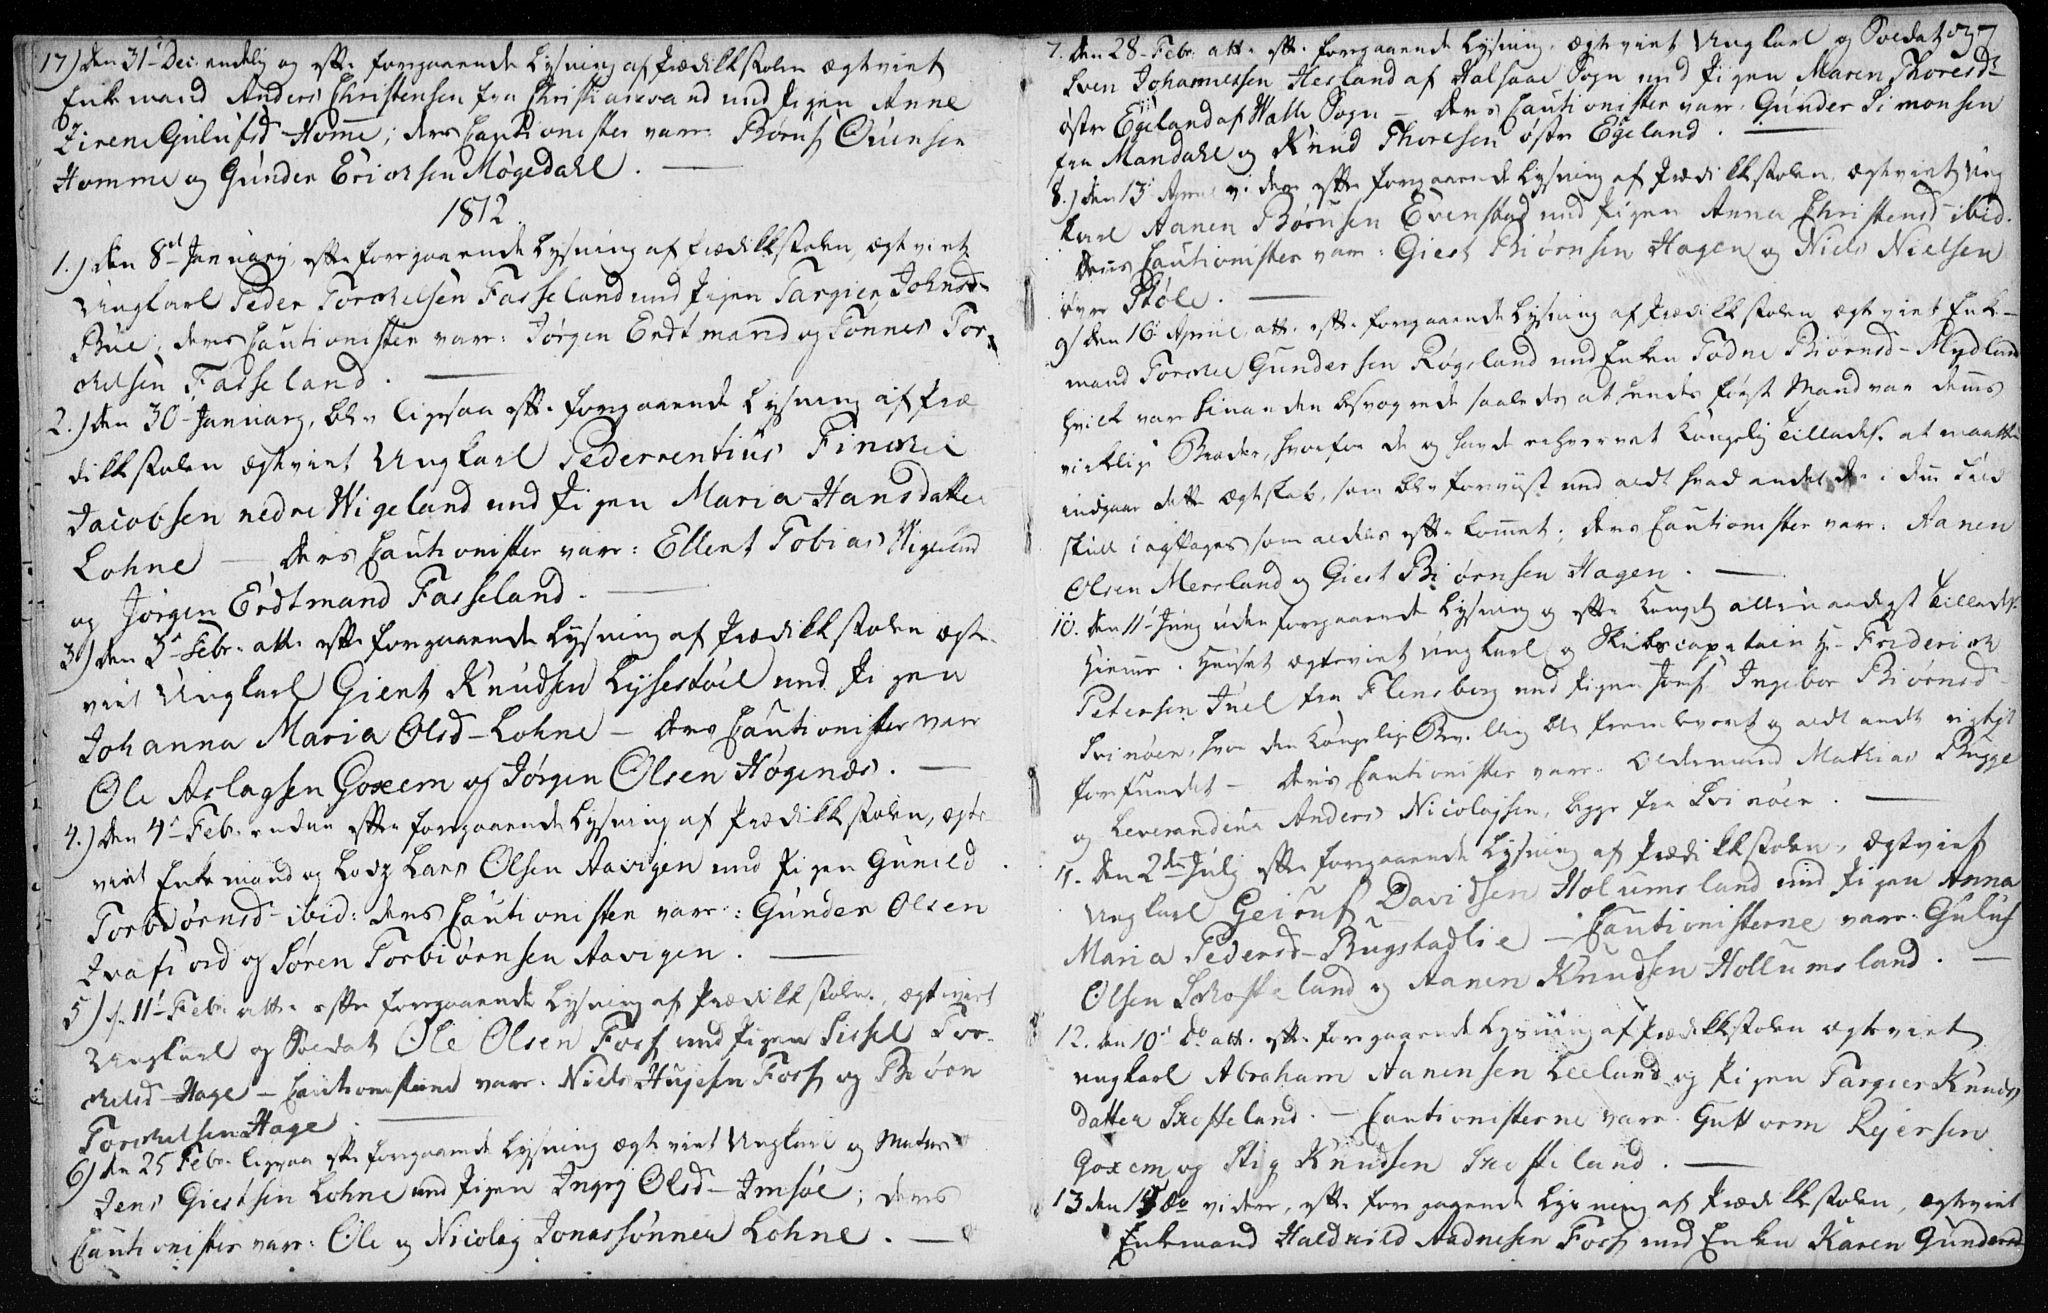 17) den 31 Dec. endelig og efter foregaaende Lysning af Prædikestolen ægteviet
Enkemand Anders Christensen fra Christiansand med Pigen Anne
Sirene Gulufsd Homme; deres Cautionister vare Børuf Ouensen
Homme og Gunder Erichsen Møgedahl.
1812.
1.) den 8de January, efter foregaaende Lysning af Prædikestolen, ægteviet
Ungkarl Peder Torchelsen Fasseland med Pigen Targier Johnsd-
Bue; deres Cautionister vare: Jørgen Erdtmand og Tønnes Tor-
chelsen Fasseland.
2.) den 30 January, blev ligesaa efter foregaaende Lysning af Præ
dikestolen ægteviet Ungkarl Pederrentius Finchel
Jacobsen nedre Wigeland med Pigen Maria Hansdatter
Lohne - deres Cautionister vare: Ellert Tobias Wigeland
og Jørgen Erdtmand Fasseland.
3) den 3 Febr. atter efter foregaaende Lysning af Prædikestolen ægte-
viet Ungkarl Giert Knudsen Lysestøel med Pigen
Johanna Maria Olsd-Lohne - deres Cautionister vare
Ole Aslagsen Goxem og Jørgen Olsen Høgenæs.
4.) den 4 Febr. endnu efter foregaaende Lysning af Prædikestolen, ægte
viet Enkemand og Lods Lars Olsen Aavigen med Pigen Gunild
Torbiørnsd-ibid: deres Cautionister vare: Gunder Olsen
Svafiord og Søren Torbiørnsen Aavigen.
5) d. 11 Febr. atter efter foregaaende Lysning af Prædikestolen, ægteviet
Ungkarl og Soldat Ole Olsen Foss med Pigen Sissel Tor-
chelsd-Hage - Cautionisterne vare. Niels Hugesen Foss og Biørn
Torchelsen Hage.
6) den 25 Febr. ligesaa efter foregaaende Lysning ægteviet Ungkarl og Matros
Jens Giertsen Lohne med Pigen Ingrj Olsd-Imsøe; deres
Cautionister vare: Ole og Nicolay Jonassønner Lohne.
7. den 28 Febr. atter efter foregaaende Lysning, ægteviet Ungkarl og Soldat
Sven Johannessen Hesland af Halsaae Sogn med Pigen Maren Thoresd-
østre Egeland af Walle Sogn - deres Cautionister vare: Gunder Simonsen
fra Mandahl og Knud Thoresen østre Egeland.
8.) den 13 April videre efter foregaaende Lysning af Prædikestolen, ægteviet Ung
karl Aanen Børusen Evenstad med Pigen Anna Christensd-ibid.
deres Cautionister vare: Giert Biørnsen Hagen og Niels Nielsen
øvre Støle.
9) den 16 April atter efter foregaaende Lysning af Prædikestolen ægteviet Enke-
mand Torchel Gundersen Røgeland med Enken Tødne Biørnsd-Mydland
hvilke vare hinanden besvogrede saaledes at hendes første Mand var dennes
virkelige Broder, hvorfor de og havde erhvervet Kongelig Tilladelse at maatte
indgaae dette Ægteskab, som blev foreviist med alt hvad andet der i den Tield
skulle iagttages, som aldeles efterkommet; deres Cautionister vare: Aanen
Olsen Mersland og Giert Biørnsen Hagen.
10. den 11 Junj uden foregaaende Lysning og efter Kongelig allernaadigst Tilladelse
hiemme i Huset ægteviet Ungkarl og Skibscapitain Hr. Friderich
Petersen Juel fra Flensborg med Pigen Jomf. Ingebor Biørnsd-
Svinøer, hvor den Kongelige Bevilling blev frembaaret og alt andet rigtigt
forefundet - deres Cautionister vare. Oldermand Mathias Bugge
og Leverandeur Anders Nicolajsen, begge fra Svinøer.
11. den 2den Julj efter foregaaende Lysning af Prædikestolen, ægteviet
Ungkarl Geiruf Davidsen Holumsland med Pigen Anna
Maria Pedersd-Bugstadlie - Cautionisterne vare: Guluf
Olsen Schofteland og Aanen Knudsen Hollumsland.
12. den 10 do atter efter foregaaende Lysning af Prædikestolen ægteviet
ungkarl Abraham Aanensen Leeland og Pigen Targier Knuds
datter Skofteland. - Cautionisterne vare. Guttorm Rejersen
Goxem og Stig Knudsen Skofteland.
13 den 15 do videre, efter foregaaende Lysning af Prædikestolen, ægteviet
Enkemand Haldvild Aadnesen Foss med Enken Karen Gundersd